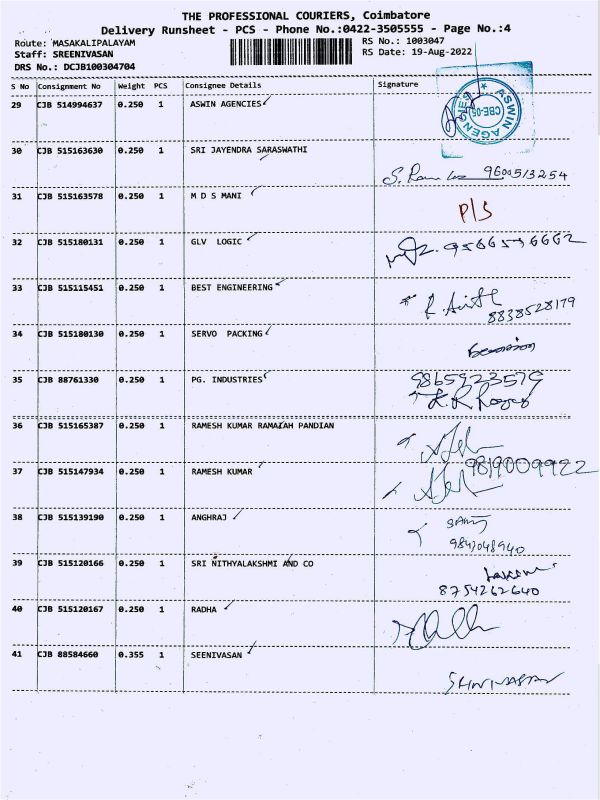 THE PROFESSIONAL COURIERS, Coimbatore
Delivery Runsheet - PCS - Phone No.:0422-3505555 - Page No.:4
Route: MASAKALIPALAYAM
Staff: SREENIVASAN
DRS No.: DCJB100304704
RS No.: 1003047
RS Date: 19-Aug-2022
S No Consignment No Weight PCS Consignee Details Signature
29 CJB 514994637 0.250 1 ASWIN AGENCIES
ASWIN AGENCIES CBE-05
30 CJB 515163630 0.250 1 SRI JAYENDRA SARASWATHI
9600513254
31 CJB 515163578 0.250 1 M D S MANI
P/S
32 CJB 515180131 0.250 1 GLV LOGIC
9566536662
33 CJB 515115451 0.250 1 BEST ENGINEERING
8838528179
34 CJB 515180130 0.250 1 SERVO PACKING
35 CJB 88761330 0.250 1 PG. INDUSTRIES
9865923579
36 CJB 515165387 0.250 1 RAMESH KUMAR RAMAIAH PANDIAN
37 CJB 515147934 0.250 1 RAMESH KUMAR
9819009922
38 CJB 515139190 0.250 1 ANGHRAJ
9842048940
39 CJB 515120166 0.250 1 SRI NITHYALAKSHMI AND CO
8754262640
40 CJB 515120167 0.250 1 RADHA
41 CJB 88584660 0.355 1 SEENIVASAN